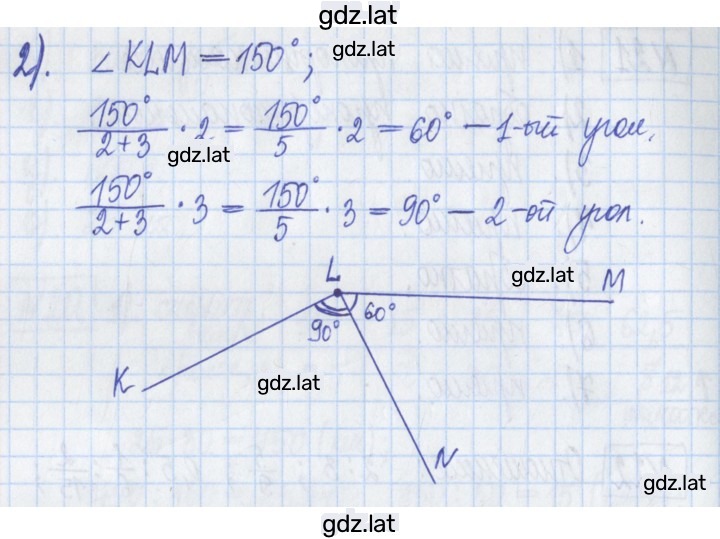 gdz.lat
2). ∠KLM = 150°; gdz.lat
150°/(2+3) · 2 = 150°/5 · 2 = 60° — 1-ый угол,
gdz.lat
150°/(2+3) · 3 = 150°/5 · 3 = 90° — 2-ой угол.
L gdz.lat M
90° 60°
K gdz.lat
N
gdz.lat
gdz.lat